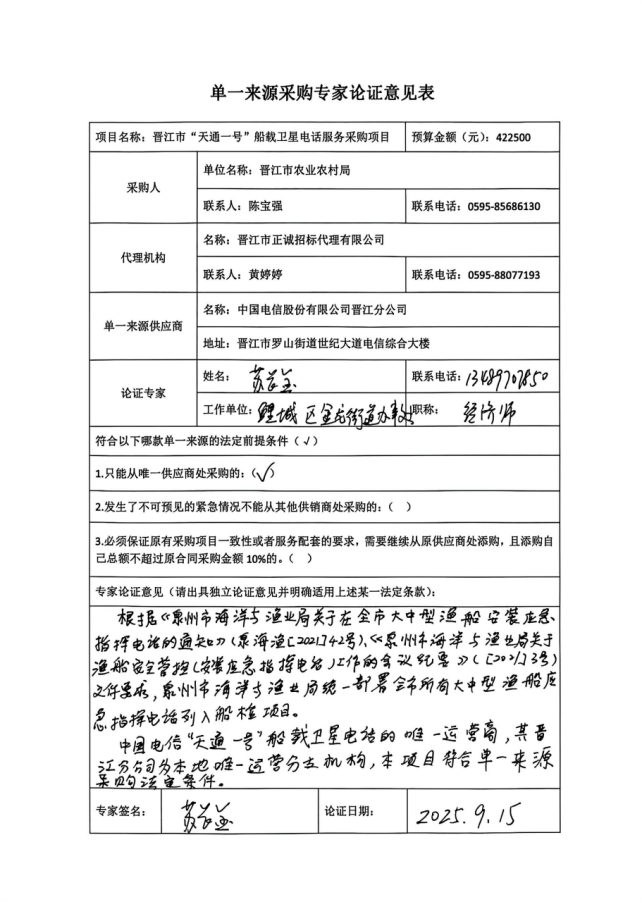 单一来源采购专家论证意见表
项目名称：晋江市“天通一号”船载卫星电话服务采购项目 预算金额（元）：422500
采购人
单位名称：晋江市农业农村局
联系人：陈宝强 联系电话：0595-85686130
代理机构
名称：晋江市正诚招标代理有限公司
联系人：黄婷婷 联系电话：0595-88077193
单一来源供应商
名称：中国电信股份有限公司晋江分公司
地址：晋江市罗山街道世纪大道电信综合大楼
论证专家
姓名：苏 联系电话：
工作单位：鲤城区金龙街道办事处 职称：经济师
符合以下哪款单一来源的法定前提条件（√）
1.只能从唯一供应商处采购的：（√）
2.发生了不可预见的紧急情况不能从其他供销商处采购的：（ ）
3.必须保证原有采购项目一致性或者服务配套的要求，需要继续从原供应商处添购，且添购自
己总额不超过原合同采购金额 10%的。（ ）
专家论证意见（请出具独立论证意见并明确适用上述某一法定条款）：
根据《泉州市海洋与渔业局关于在全市大中型渔船安装应急
指挥电话的通知》（泉海渔［2021］42号）、《泉州市海洋与渔业局关于
渔船安全管控（安装应急指挥电话）工作的会议纪要》（［2021］3号）
文件要求，泉州市海洋与渔业局统一部署全市所有大中型渔船应
急指挥电话列入船检项目。
中国电信“天通一号”船载卫星电话的唯一运营商，其晋
江分公司为本地唯一运营分支机构，本项目符合单一来源
采购法定条件。
专家签名：苏 论证日期：2025.9.15